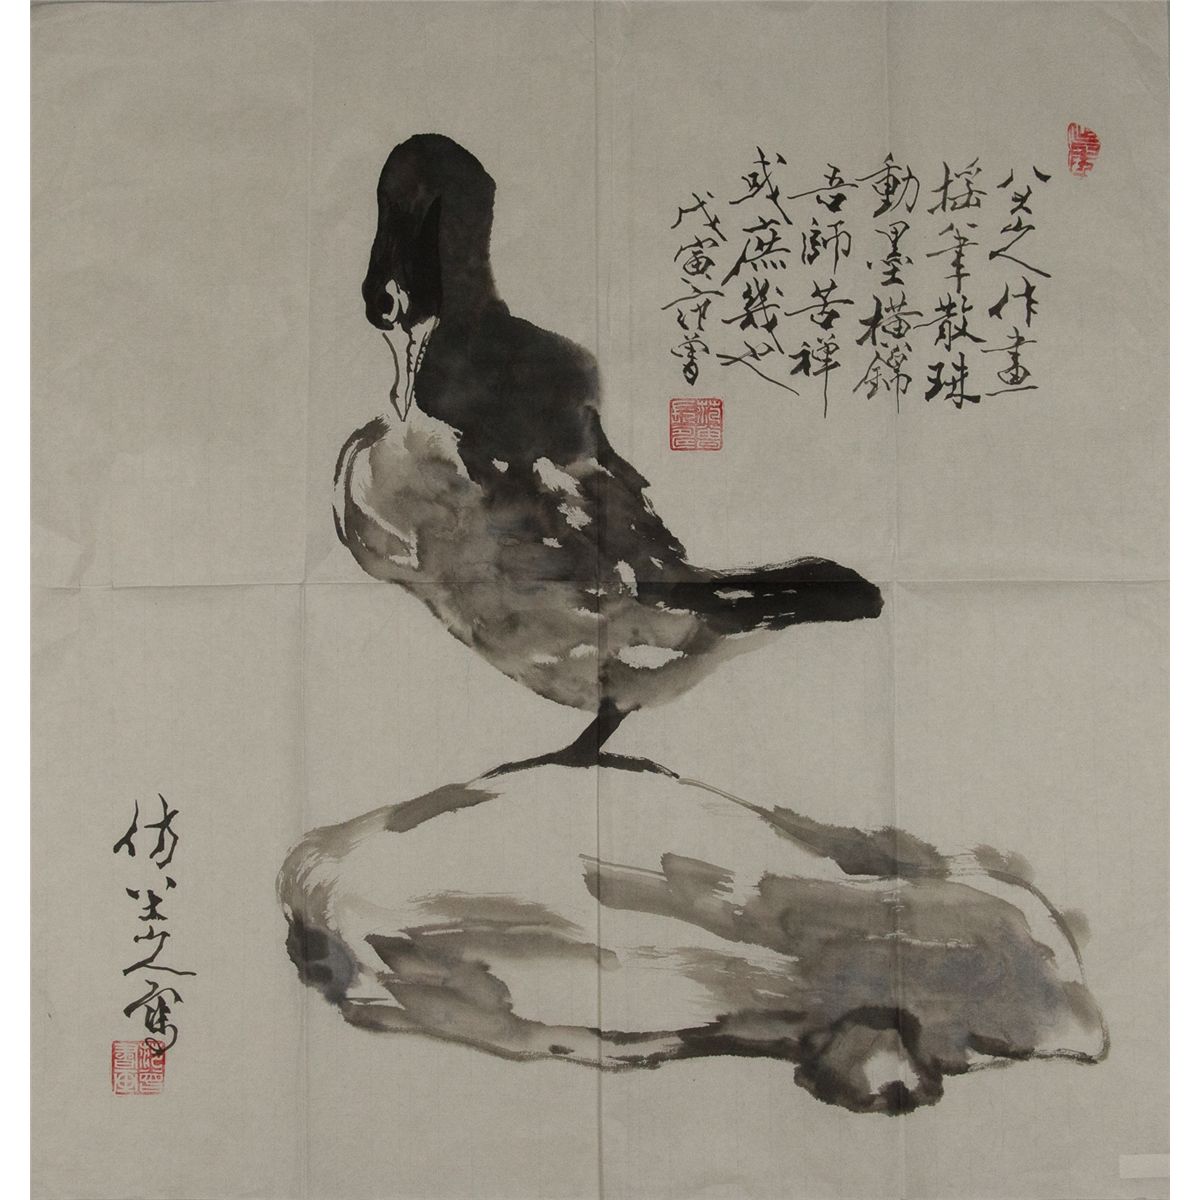 八大山人作畫
搖筆散珠
動墨橫錦
吾師苦禪
或庶幾也
戊寅范曾
仿八大山人寫